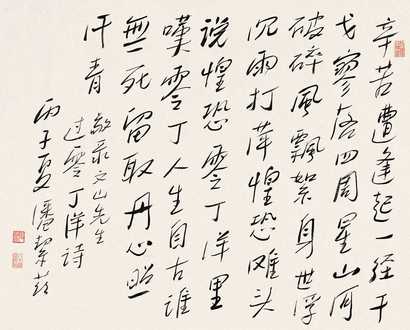 辛苦遭逢起一經干
戈寥落四周星山河
破碎風飄絮身世浮
沉雨打萍惶恐灘頭
說惶恐零丁洋里
嘆零丁人生自古誰
無死留取丹心照
汗青
敬录文山先生
过零丁洋诗
丙子夏潘絜茲